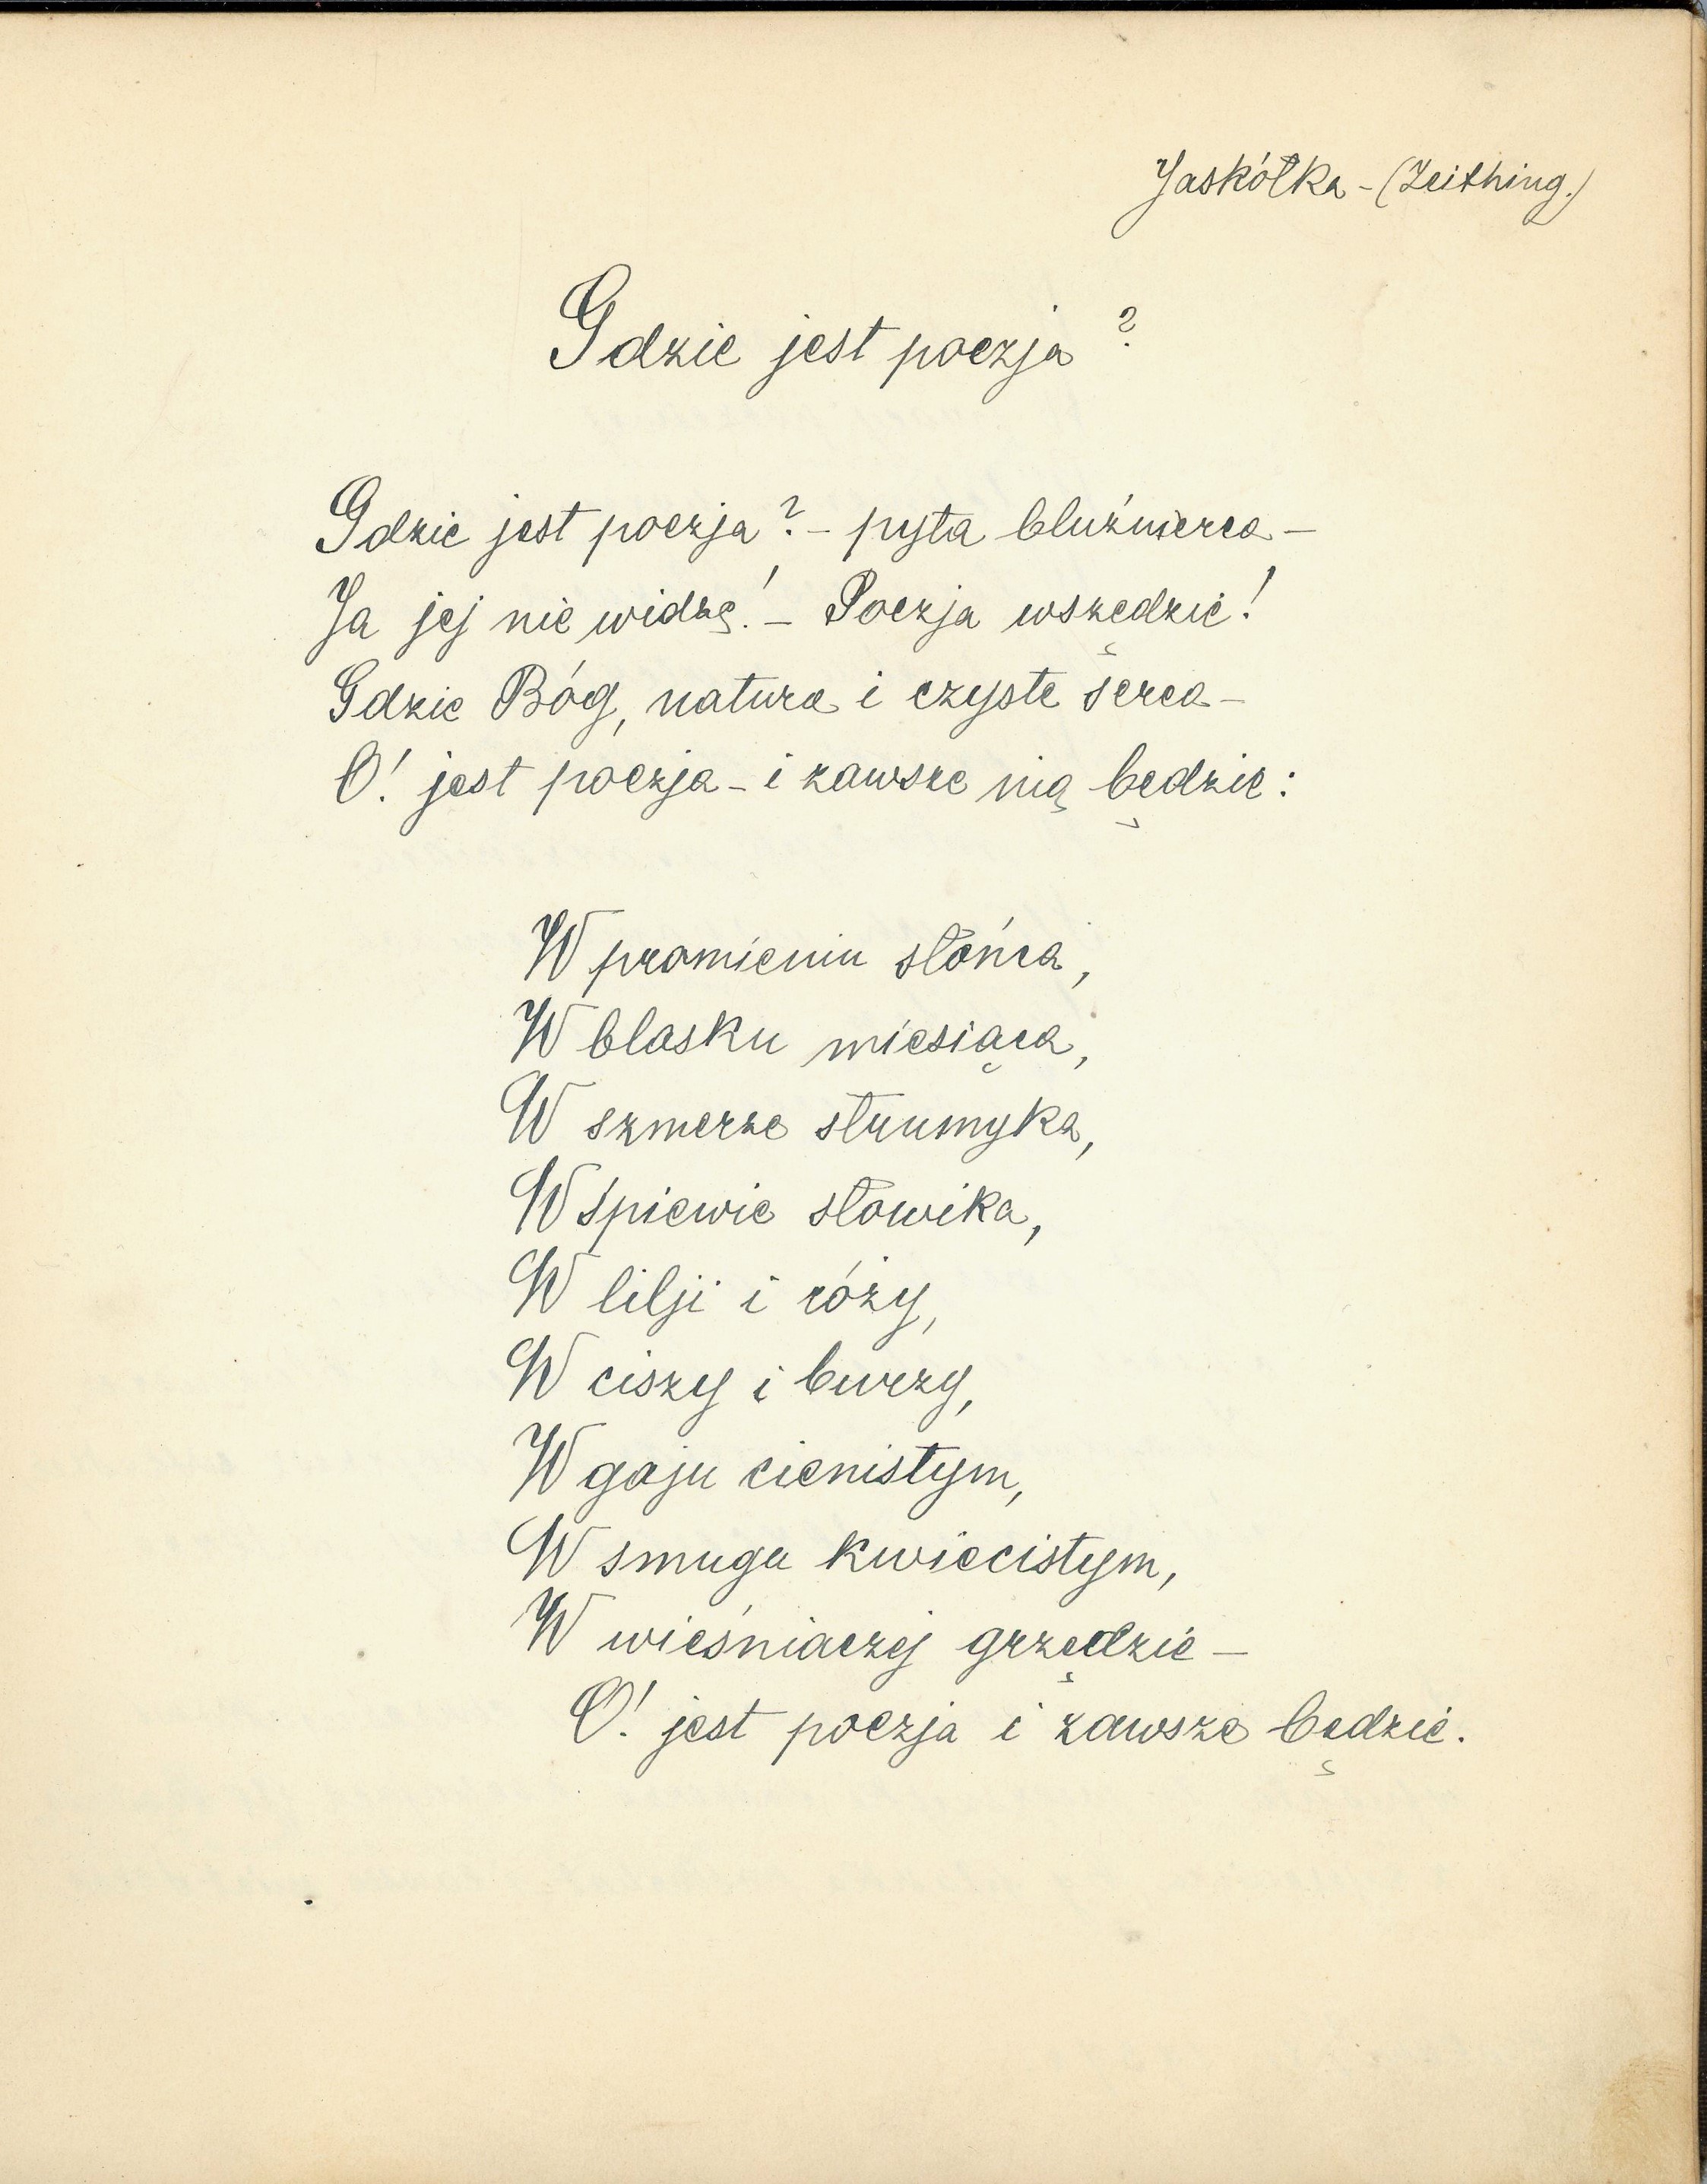 Jaskółka - (Zeithing.)
Gdzie jest poezja?
Gdzie jest poezja? - pyta bluźnierca -
Ja jej nie widzę! - Poezja wszędzie!
Gdzie Bóg, natura i czyste serca -
O! jest poezja - i zawsze nią będzie:
W promieniu słońca,
W blasku miesiąca,
W szmerze strumyka,
W śpiewie słowika,
W lilji i róży,
W ciszy i burzy,
W gaju cienistym,
W smugu kwiecistym,
W wieśniaczej grzędzie -
O! jest poezja i zawsze będzie.